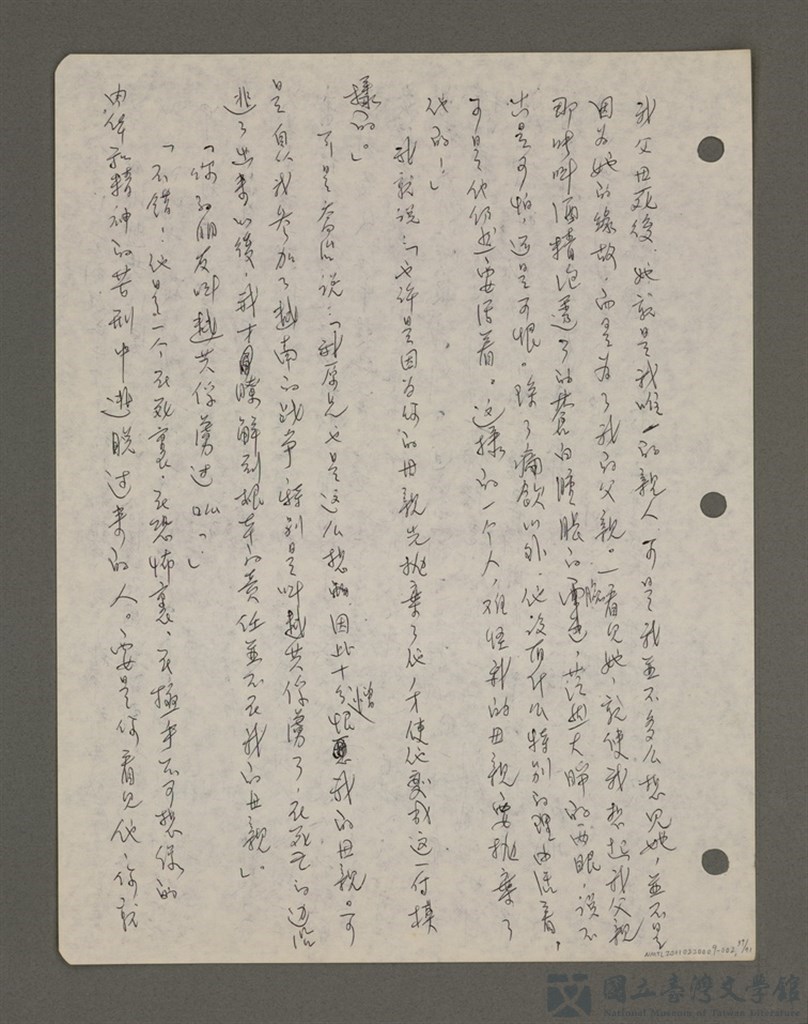 我父母死後，她就是我唯一的親人。可是我並不多么想見她，並不是
因为她的緣故，而是为了我的父親。一看見她，就使我想起我父親
那叫酒精泡透了的蒼白腫脹的臉，茫然大睜的兩眼，說不
出是可怕，还是可恨。除了痛飲以外，他没有什么特别的理由活着，
可是他仍然要活着。这樣的一个人，难怪我的母親要抛棄了
他的！」
我就说：「也许是因为你的母親先抛棄了他，才使他變成这一付模
樣的。」
可是喬治说：「我原先也是这么想的，因此十分憎恨我的母親。可
是自从我参加了越南的战争，特别是叫越共俘虜了，在死亡的边沿
逃了出來以後，我才瞭解到根本的責任並不在我的母親。」
「你的朋友叫越共俘虜过吗？」
「不錯！他是一个在死裏、在恐怖裏、在極乎不可想像的
肉体和精神的苦刑中逃脱过來的人。要是你看見他，你就
NMTL20110220009-002
國立臺灣文學館
National Museum of Taiwan Literature